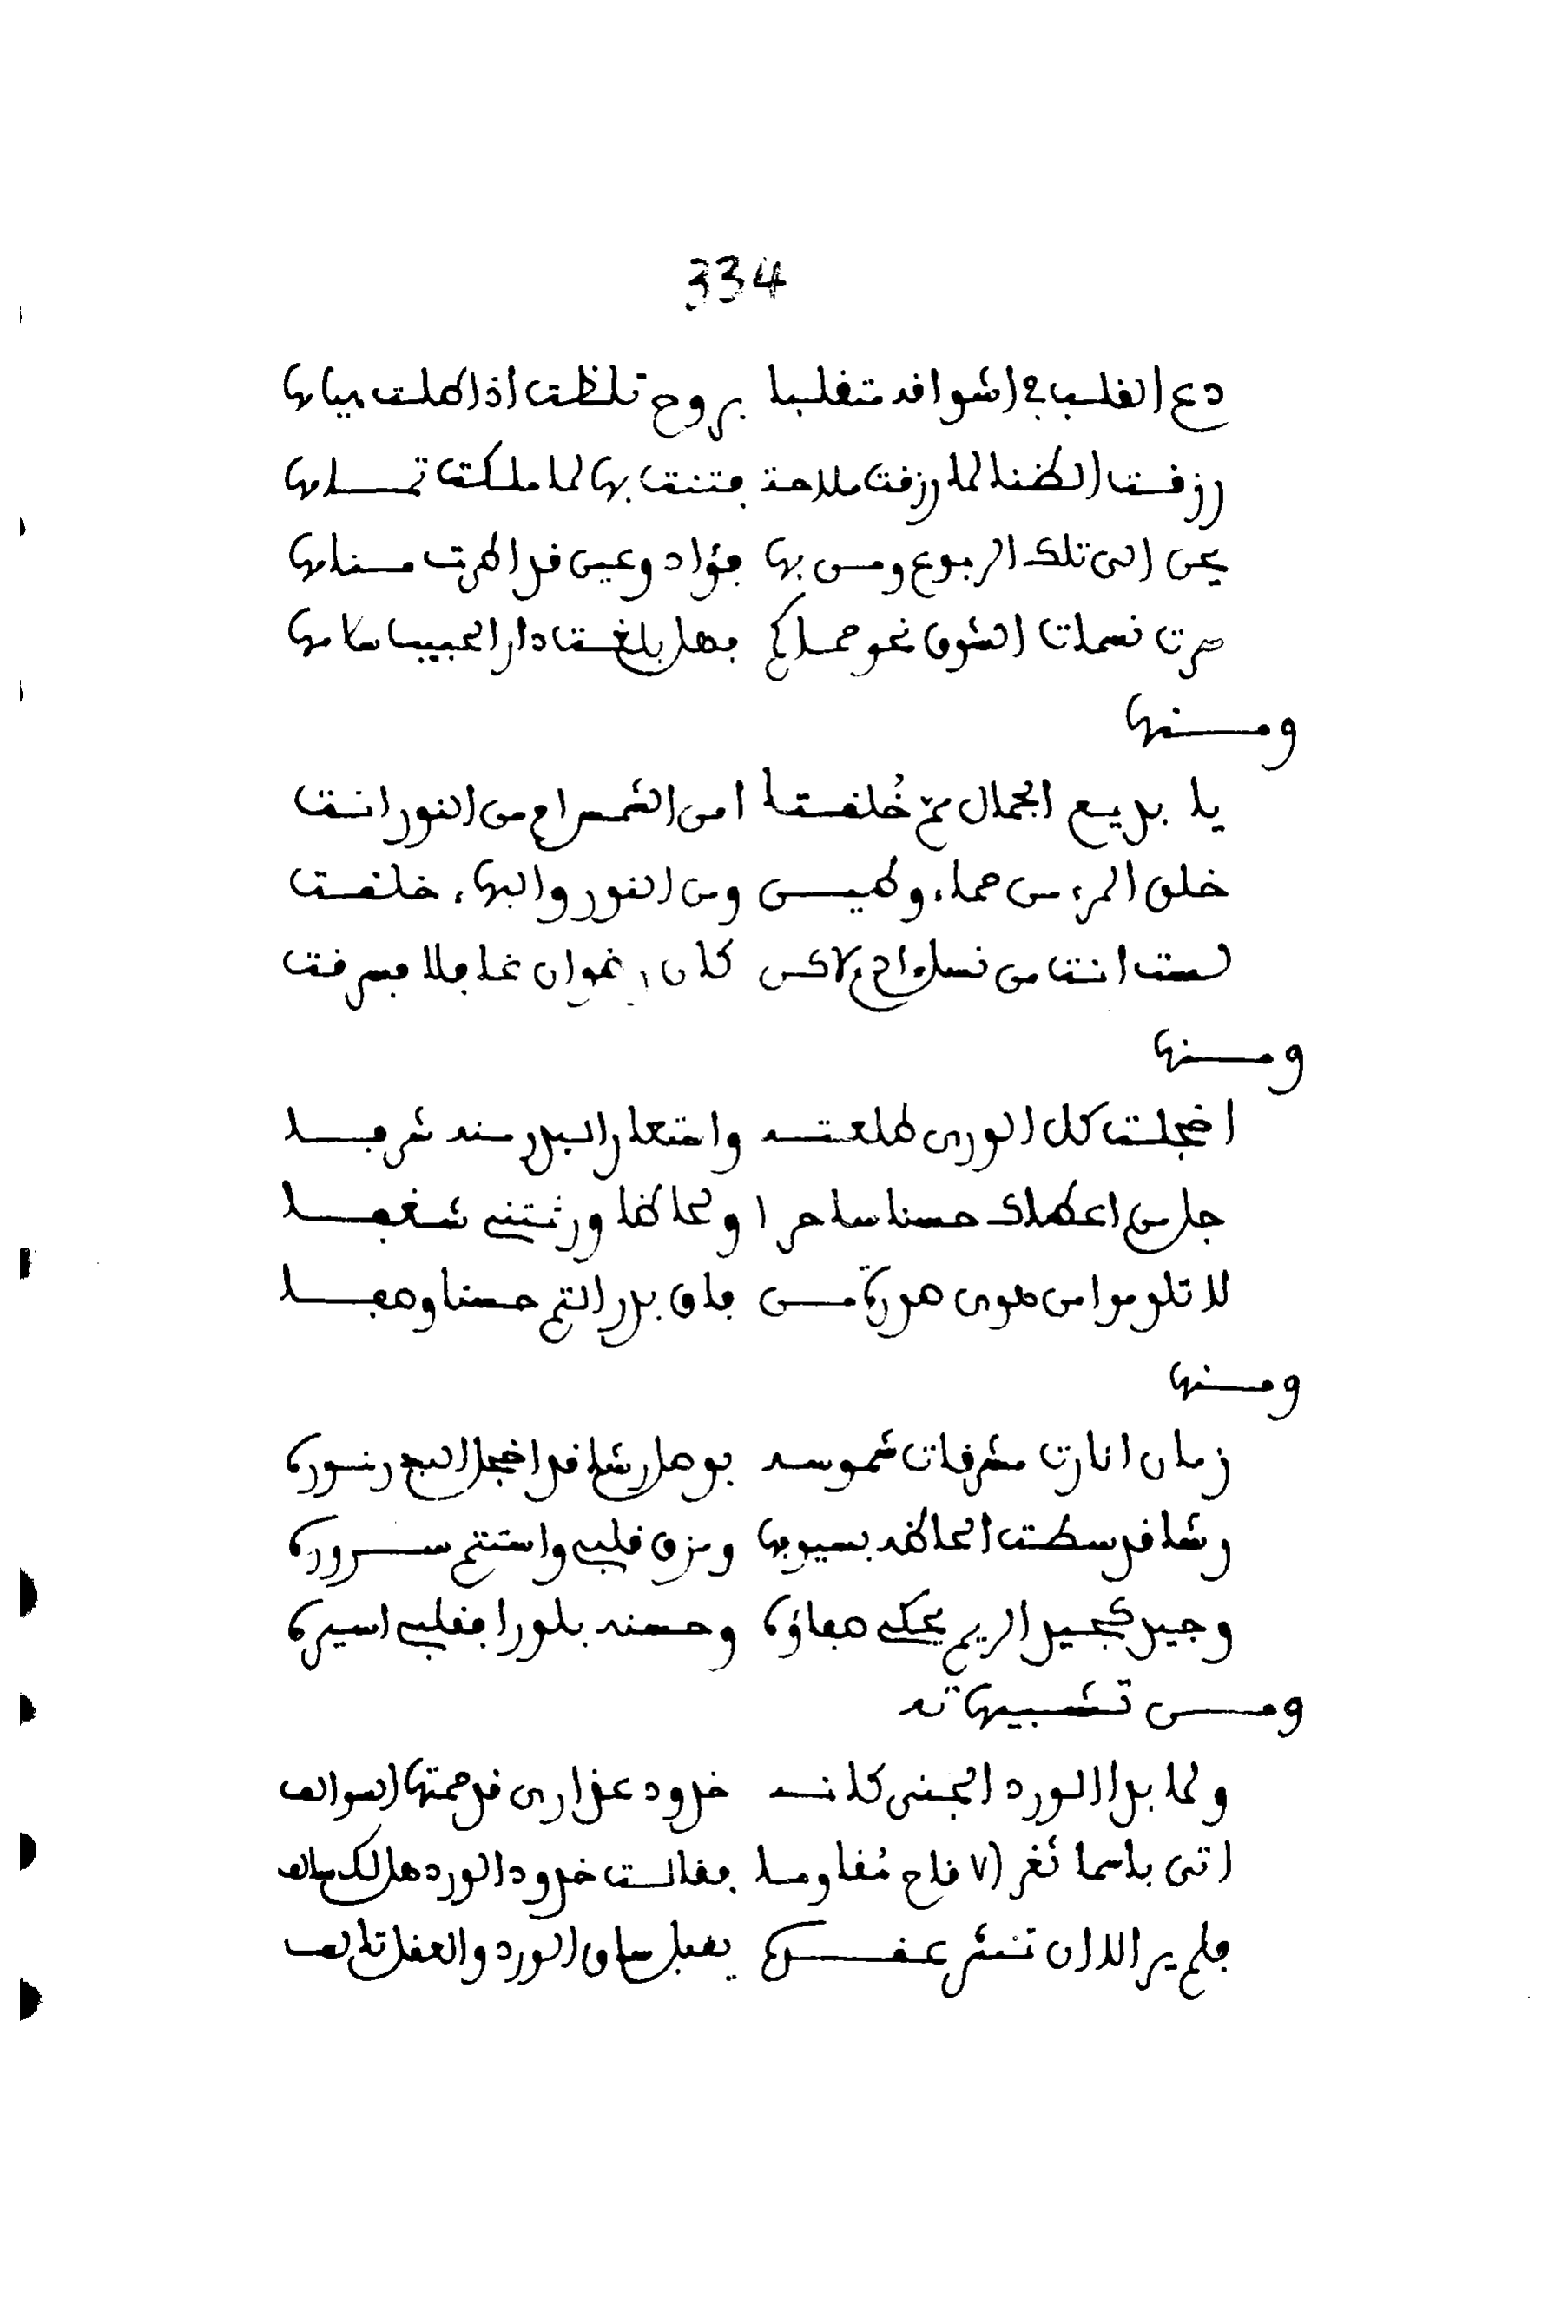 334
دع القلب في اشواقه متقلبا بروح تلظت اذ اطلت بيانها
رزقت الضنا لما رزقت ملاحة فتنت بها لما ملكت
يحن الى تلك الربوع ومن بها فؤاد وعين قد اطرت منامها
سرت نسمات الشوق نحو حماكم فهل بلغت دار الحبيب سلامها
ومنها
يا بديع الجمال مم خُلقتا امن الشمس ام من النور انت
خلق المرء من حماء وطين ومن النور والبهاء خلقت
لست انت من نسل ادم لاكن كان رضوان غافلا فسرقت
ومنها
اخجلت كل الورى طلعته واستعار البدر منه شرفا
جل من اعطاك حسنا ساحرا ولحاظا ورثتني شغفا
لا تلوموا من هوى صورة من فاق بدر التم حسنا وصفا
ومنها
زمان انارت مشرفات شموسه بوصل رشا قد اخجل البدر نوره
رشا قد سطت الحاظه بسيوفها ومزق قلبي واستتم سروره
وجيد كجيد الريم يحكي صفاؤه وحسنه بلورا فقلبي اسيره
ومن تشبيهاته
ولما بدا الورد الجني كانه خدود عذارى قد حمتها السوالف
اتى باسما ثغر الاقاح مُقاوما فقالت خدود الورد هل لك سالف
فلم ير الا ان تنثر عقده يقبل ساق الورد والعقل تالف